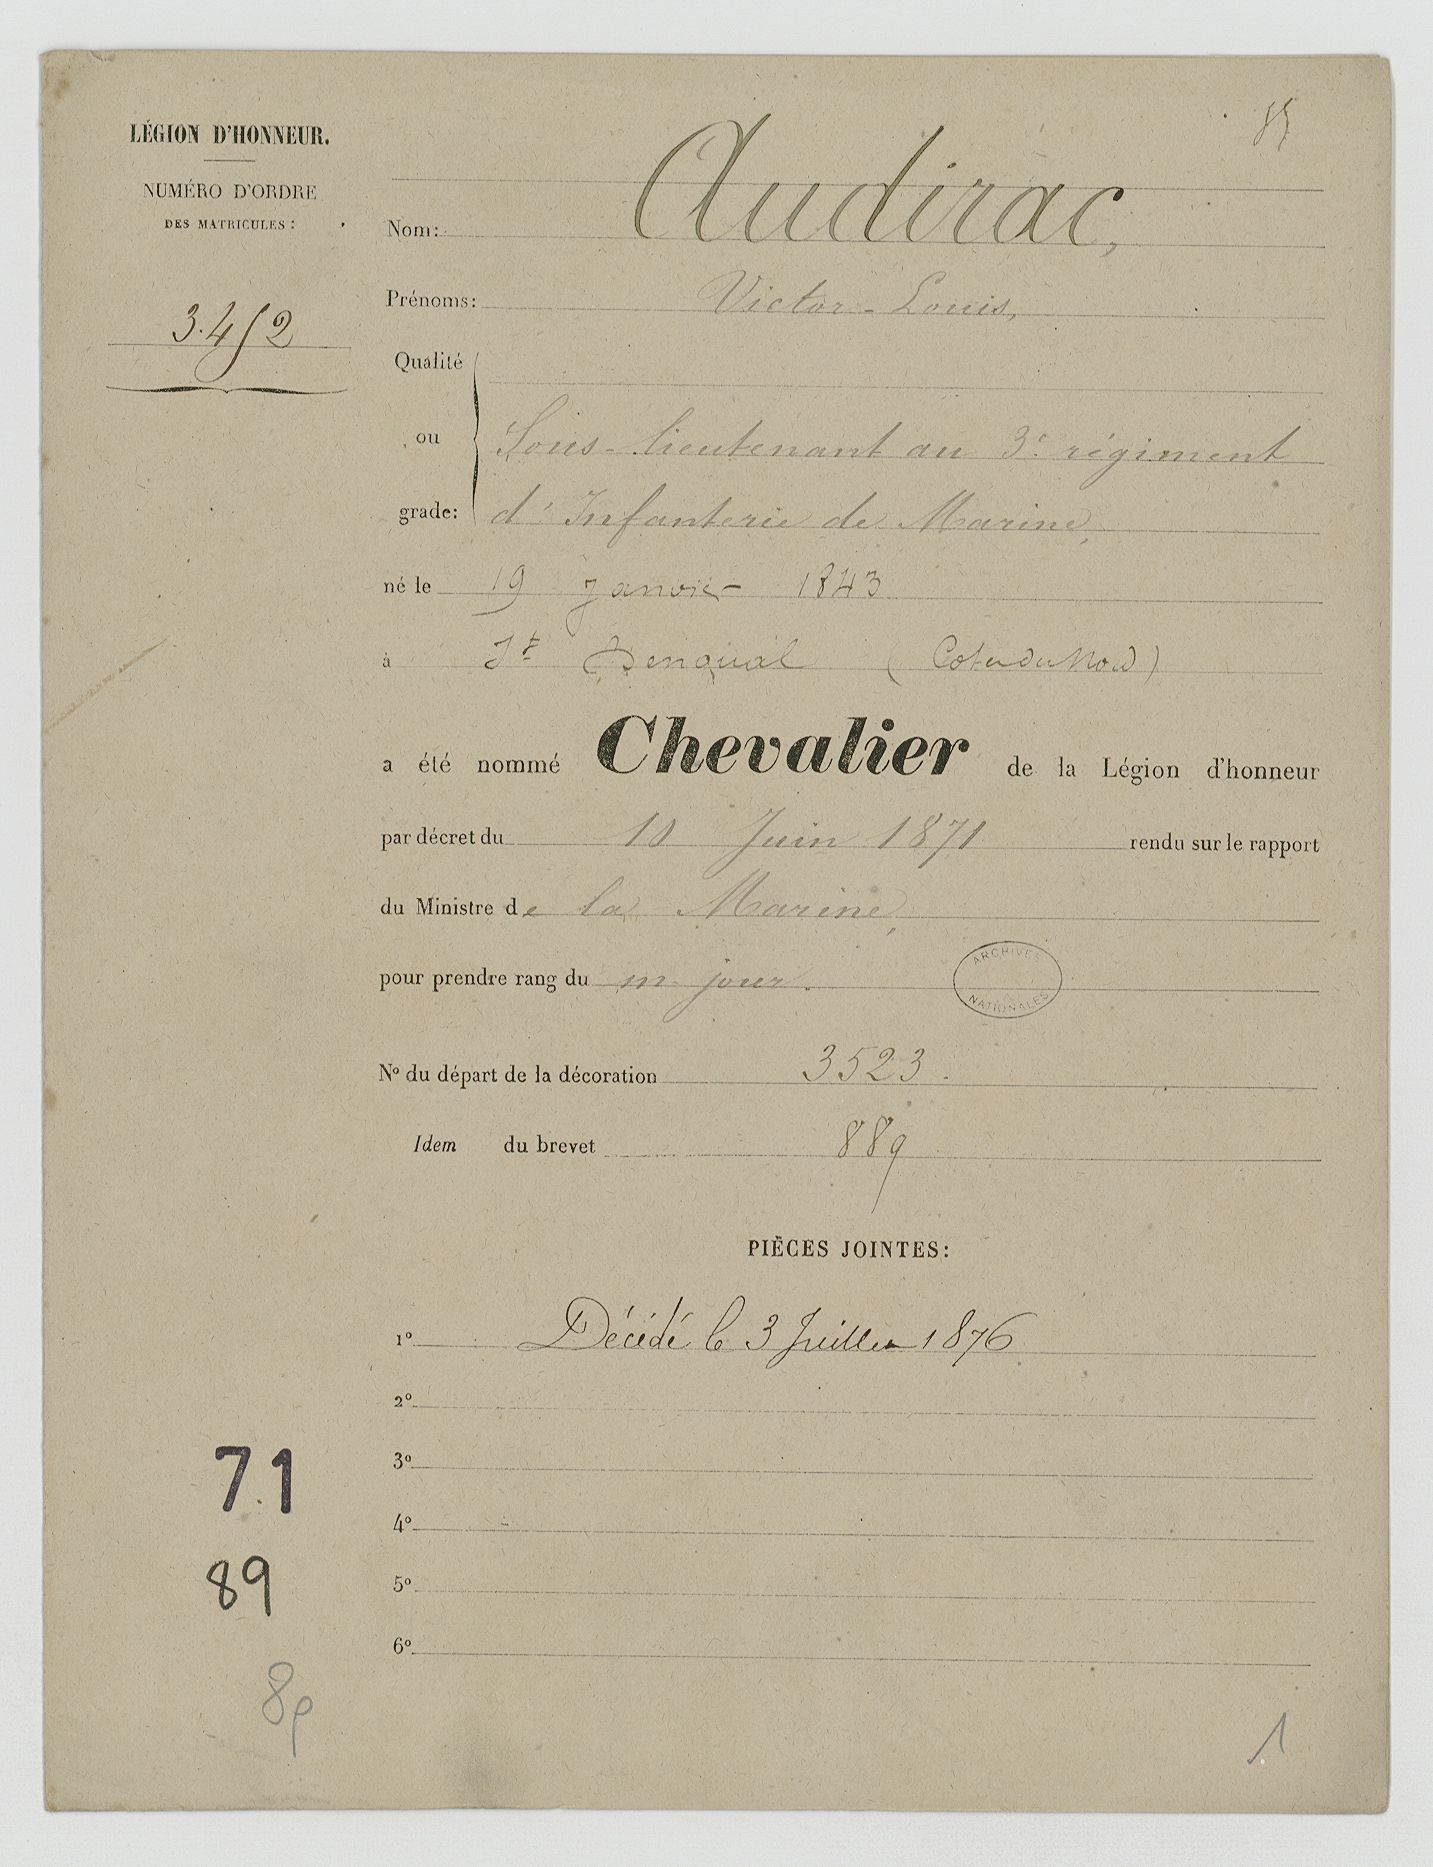 LÉGION D'HONNEUR.
NUMÉRO D'ORDRE
DES MATRICULES :
3.452
Nom: Audirac,
Prénoms: Victor-Louis,
Qualité
ou
grade:
Sous-lieutenant au 3e régiment
d'Infanterie de Marine,
né le 19 Janvier 1843
à St Denoual (Cotes du Nord)
a été nommé Chevalier de la Légion d'honneur
par décret du 10 Juin 1871 rendu sur le rapport
du Ministre de la Marine,
pour prendre rang du m. jour.
ARCHIVES NATIONALES
No du départ de la décoration 3523.
Idem du brevet 889
PIÈCES JOINTES:
1o Décédé le 3 Juillet 1876
2o
3o
4o
5o
6o
71
89
8p
1